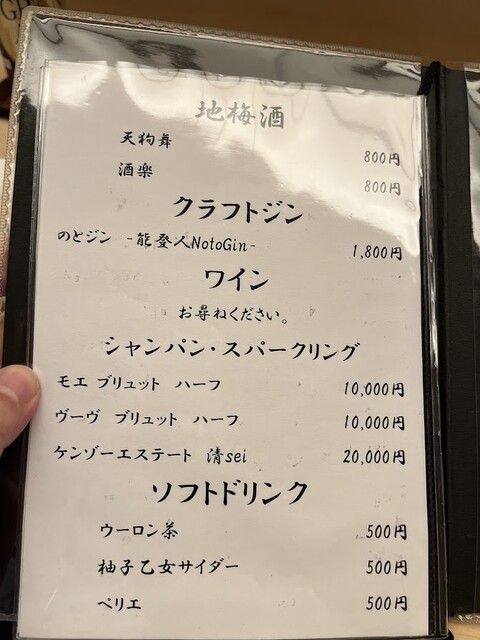 地梅酒
天狗舞 800円
酒楽 800円
クラフトジン
のとジン -能登人NotoGin- 1,800円
ワイン
お尋ねください。
シャンパン・スパークリング
モエ ブリュット ハーフ 10,000円
ヴーヴ ブリュット ハーフ 10,000円
ケンゾーエステート 清sei 20,000円
ソフトドリンク
ウーロン茶 500円
柚子乙女サイダー 500円
ペリエ 500円